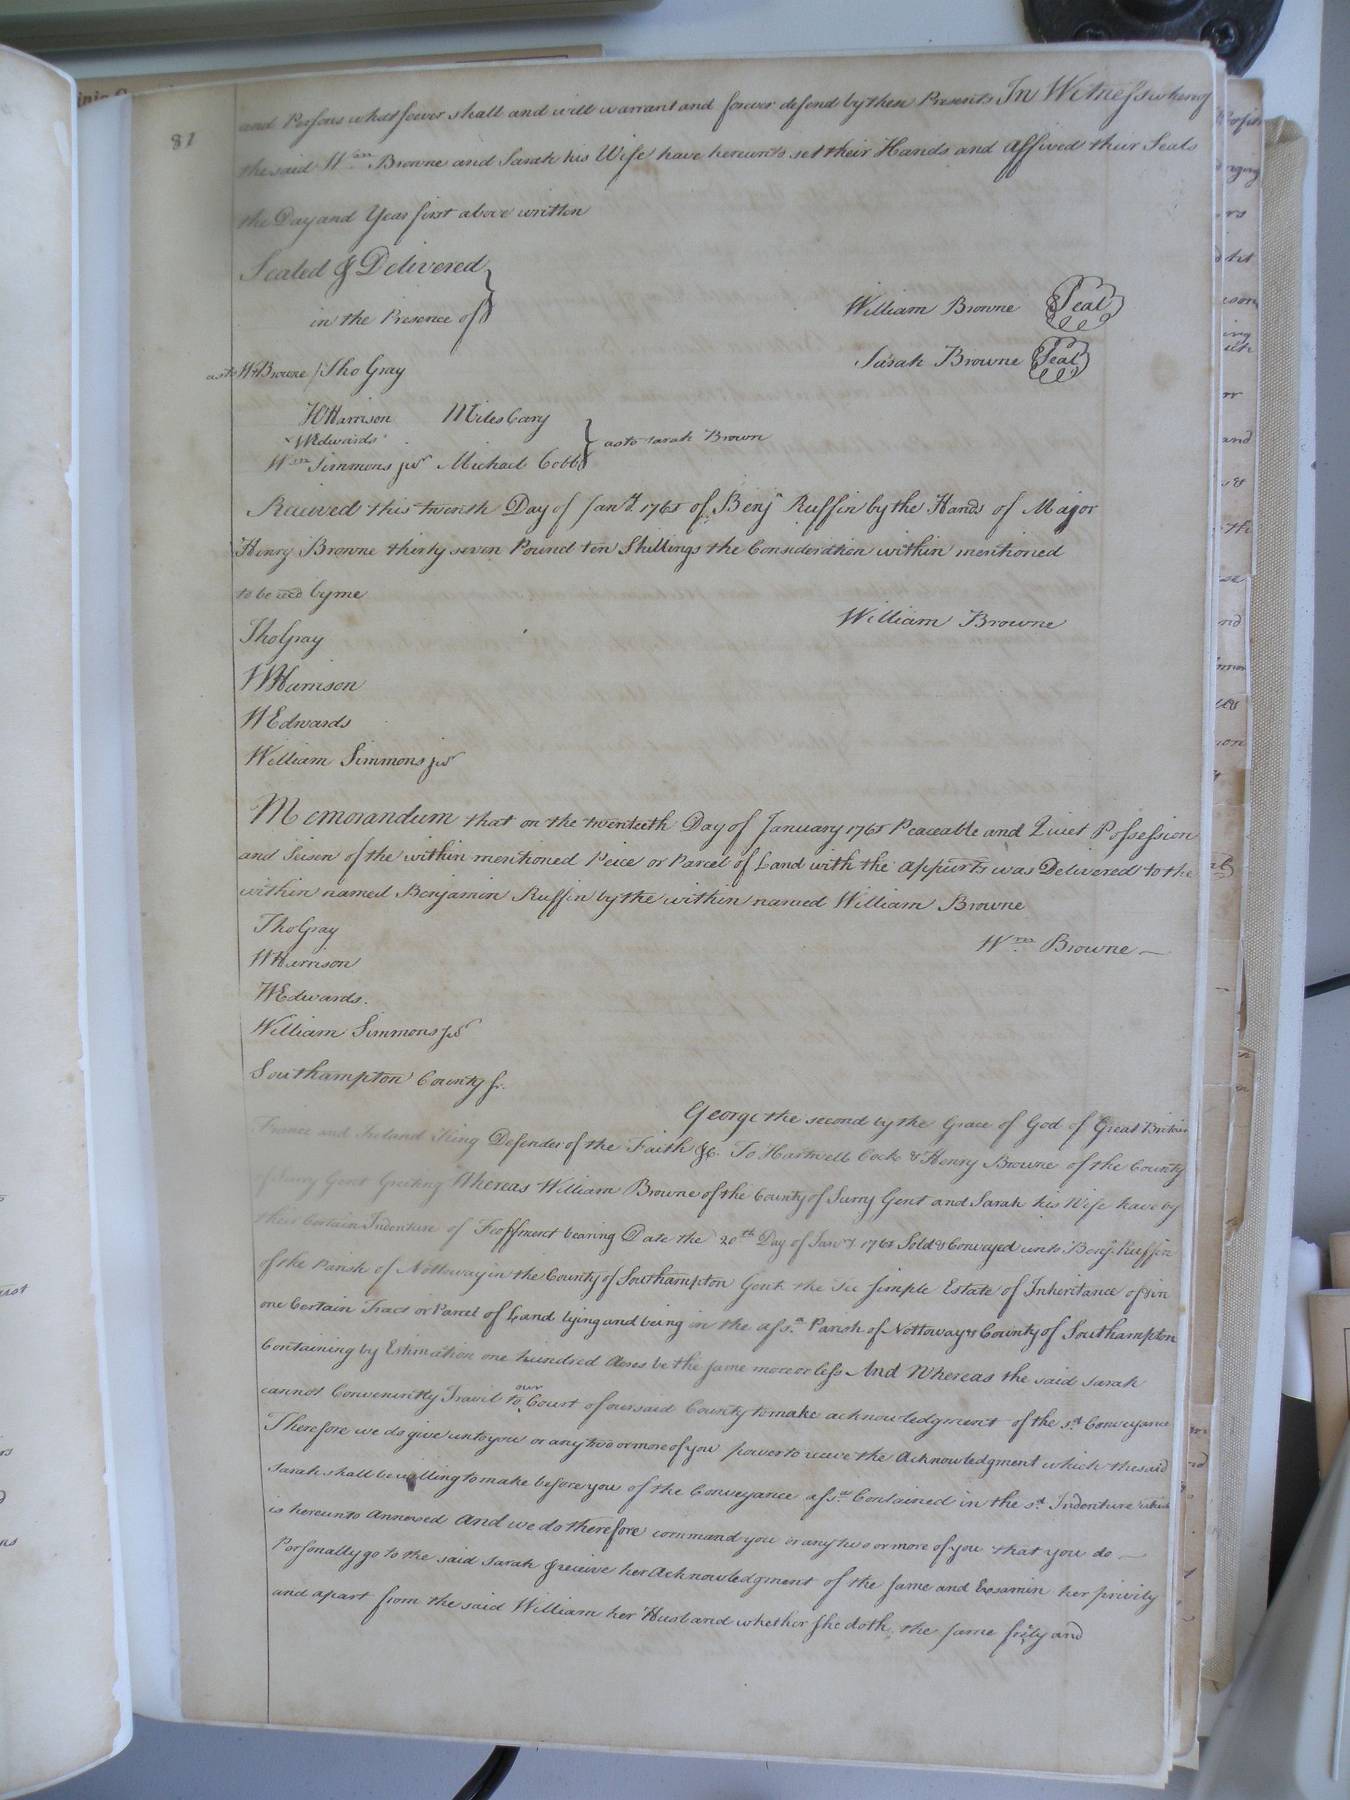 81
and Persons whatsoever shall and will warrant and forever defend by these Presents In Witness whereof
the said Wm Browne and Sarah his Wife have hereunto set their Hands and Affixed their Seals
the Day and Year first above written
Sealed & Delivered
in the Presence of
William Browne Seal
Sarah Browne Seal
as to W Browne Tho Gray
W Harrison Miles Cary
W Edwards
as to Sarah Brown
Wm Simmons junr Michael Cobb
Received this twenth Day of Jany 1761 of Benja Ruffin by the Hands of Major
Henry Browne thirty seven Pound ten Shillings the Consideration within mentioned
to be recd by me
William Browne
Tho Gray
W Harrison
W Edwards
William Simmons junr
Memorandum that on the twentieth Day of January 1761 Peaceable and Quiet Possession
and Seisen of the within mentioned Peice or Parcel of Land with the appurts was Delivered to the
within named Benjamin Ruffin by the within named William Browne
Tho Gray
Wm Browne
W Harrison
W Edwards.
William Simmons junr
Southampton County
George the second by the Grace of God of Great Britain
France and Ireland King Defender of the Faith &c. To Hartwell Cocke & Henry Browne of the County
of Surry Gent Greeting Whereas William Browne of the County of Surry Gent and Sarah his Wife have by
their Certain Indenture of Feoffment bearing Date the 20th Day of Jany 1761 Sold & Conveyed unto Benja Ruffin
of the Parish of Nottoway in the County of Southampton Gent the Fee Simple Estate of Inheritance of & in
one Certain Tract or Parcel of Land lying and being in the afsd Parish of Nottoway & County of Southampton
Containing by Estimation one hundred Acres be the same more or less And Whereas the said Sarah
cannot Conveniently Travil to our Court of our said County to make acknowledgment of the sd Conveyance
Therefore we do give unto you or any two or more of you power to receive the Acknowledgment which the said
Sarah shall be willing to make before you of the Conveyance afsd Contained in the sd Indenture which
is hereunto Annexed And we do therefore command you or any two or more of you that you do
Personally go to the said Sarah & receive her Acknowledgment of the same and Examin her privily
and apart from the said William her Husband whether she doth the same frely and